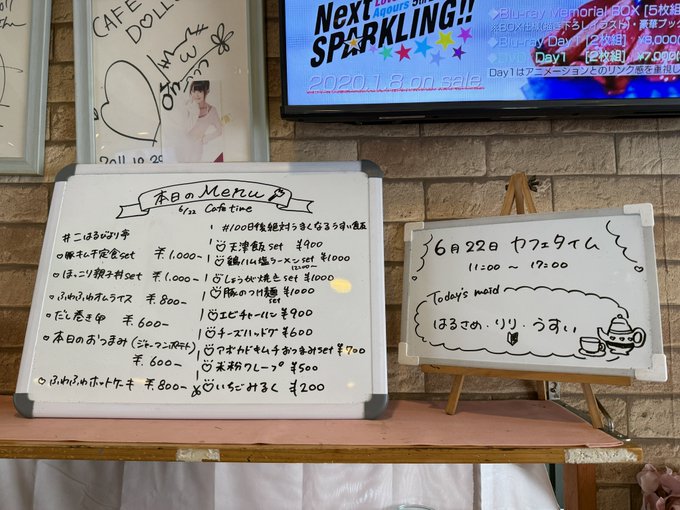 CAFE
DOLL
2011.10.29
Next
SPARKLING!!
2020.1.8 on sale
◆Blu-ray Memorial BOX [5枚組]
◆Blu-ray Day1 [2枚組] ¥8,000
◆DVD Day1 [2枚組] ¥7,000
Day1はアニメーションとのリンク感を重視し
本日のMenu
6/22 Cafe time
#こはるびより亭
豚キムチ定食set ¥1,000-
ほっこり親子丼set ¥1,000-
ふわふわオムライス ¥800-
だし巻き卵 ¥600-
本日のおつまみ(ジャーマンポテト)
¥600-
ふわふわホットケーキ ¥800-
#100日後絶対うまくなるうすい食飯
天津飯set ¥900
鶏ハム塩ラーメンset ¥1000
12:00〜
しょうが焼きset ¥1000
豚のつけ麺set ¥1000
エビチャーハン ¥900
チーズハットグ ¥600
アボカドキムチおつまみset ¥700
米粉クレープ ¥500
いちごみるく ¥200
6月22日 カフェタイム
11:00 〜 17:00
Today's maid
はるさめ・りり・うすい